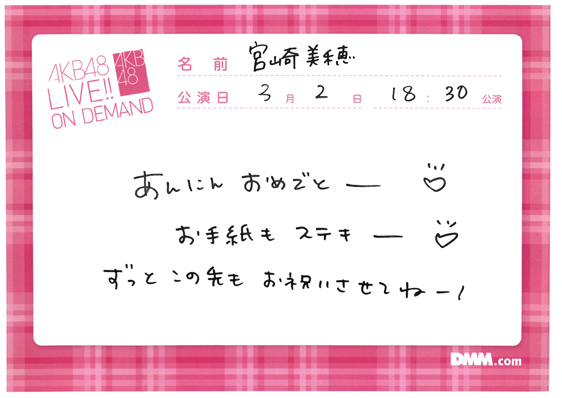 AKB48
LIVE!!
ON DEMAND
AKB
48
名前 宮崎美穂
公演日 3月2日 18:30公演
あんにん おめでとー
お手紙も ステキー
ずっと この先も お祝いさせてねー!
DMM.com